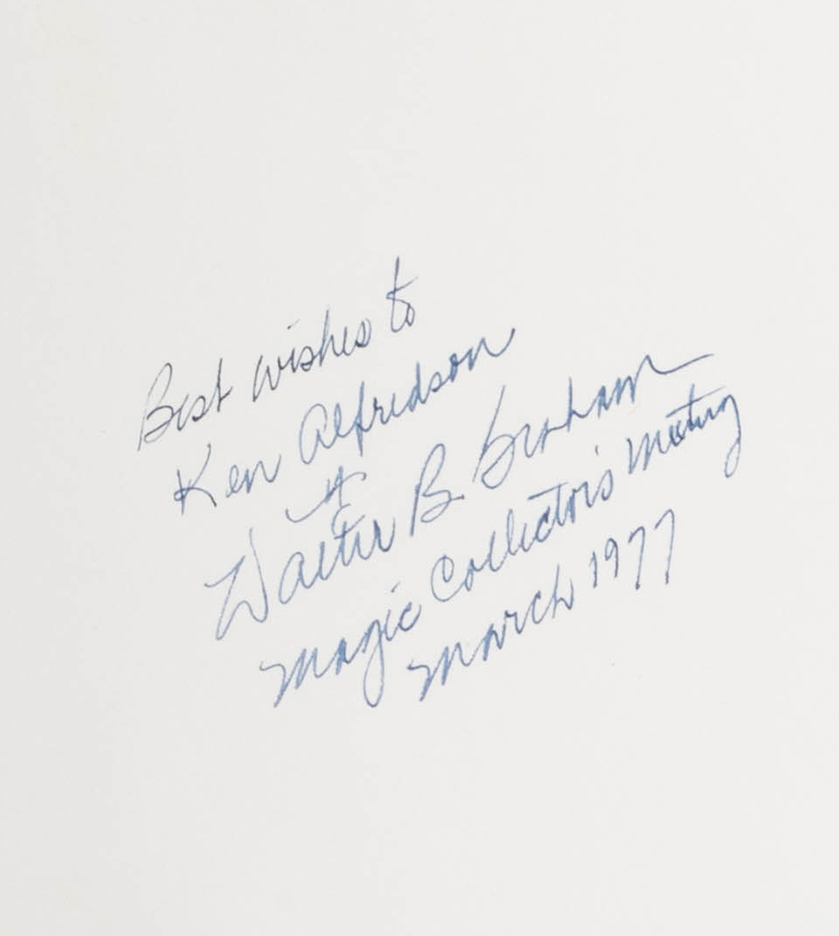 Best wishes to
Ken Alfredson
Walter B. Graham
Magic Collectors Meeting
March 1977